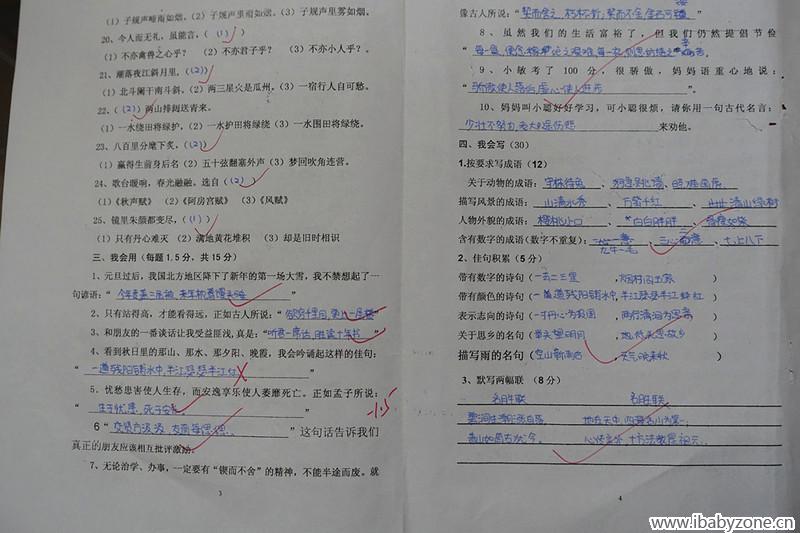 (1) 子规声啼雨如烟。(2) 子规声里雨如烟。(3) 子规声里雾如烟。
20、今人而无礼，虽能言，( (1) )
(1) 不亦禽兽之心乎？ (2) 不亦君子乎？ (3) 不亦小人乎？。
21、潮落夜江斜月里，( (2) )
(1) 北斗阑干南斗斜。(2) 两三星火是瓜州。(3) 一宿行人自可愁。
22、( (2) ) 两山排闼送青来。
(1) 一水绕田将绿护，(2) 一水护田将绿绕 (3) 一水围田将绿绕。
23、八百里分麾下炙，( (2) )
(1) 赢得生前身后名 (2) 五十弦翻塞外声 (3) 梦回吹角连营。
24、歌台暖响，春光融融。选自 ( (2) )
(1)《秋声赋》 (2)《阿房宫赋》 (3)《风赋》
25、镜里朱颜都变尽，( (1) )
(1) 只有丹心难灭 (2) 满地黄花堆积 (3) 却是旧时相识
三、我会用（每题 1.5 分，共 15 分）
1、元旦过后，我国北方地区降下了新年的第一场大雪，我不禁想起了一
句谚语："今冬麦盖三层被，来年枕着馒头睡"
2、只有站得高，才能看得远，正如古人所说："欲穷千里目，更上一层楼"
3、和朋友的一番谈话让我受益匪浅，真是："听君一席话，胜读十年书"
4、看到秋日里的那山、那水、那夕阳、晚霞，我会吟诵起这样的佳句：
"一道残阳铺水中，半江瑟瑟半江红"
5、忧愁患害使人生存，而安逸享乐使人萎靡死亡。正如孟子所说：
"生于忧患，死于安乐" -1.5
6" " 这句话告诉我们
真正的朋友应该相互批评激励。
7、无论治学、办事，一定要有 "锲而不舍" 的精神，不能半途而废。就
3
像古人所说："契而舍之，朽木不折；契而不舍，金石可镂"
8、虽然我们的生活富裕了，但我们仍然提倡节俭
9、小敏考了 100 分，很骄傲，妈妈语重心地说：
"骄傲使人落后，虚心使人进步"。
10、妈妈叫小聪好好学习，可小聪很烦，请你用一句古代名言：
少壮不努力，老大徒伤悲 来劝他。
四、我会写（30）
1.按要求写成语（12）
关于动物的成语：守株待兔、狗急跳墙、
描写风景的成语：山清水秀、万紫千红、青山绿树
人物外貌的成语：樱桃小口、白白胖胖、
含有数字的成语（数字不重复）：一心一意、九牛一毛、三心二意、七上八下
2、佳句积累（5 分）
带有数字的诗句（一去二三里，烟村四五家）
带有颜色的诗句（一道残阳铺水中，半江瑟瑟半江红）
表示志向的诗句（一寸丹心为报国，两行清泪为思亲）
关于思乡的名句（举头望明月，低头思故乡）
描写雨的名句（空山新雨后，天气晚来秋）
3、默写两幅联（8 分）
名胜联 名胜联
4
www.ibabyzone.cn